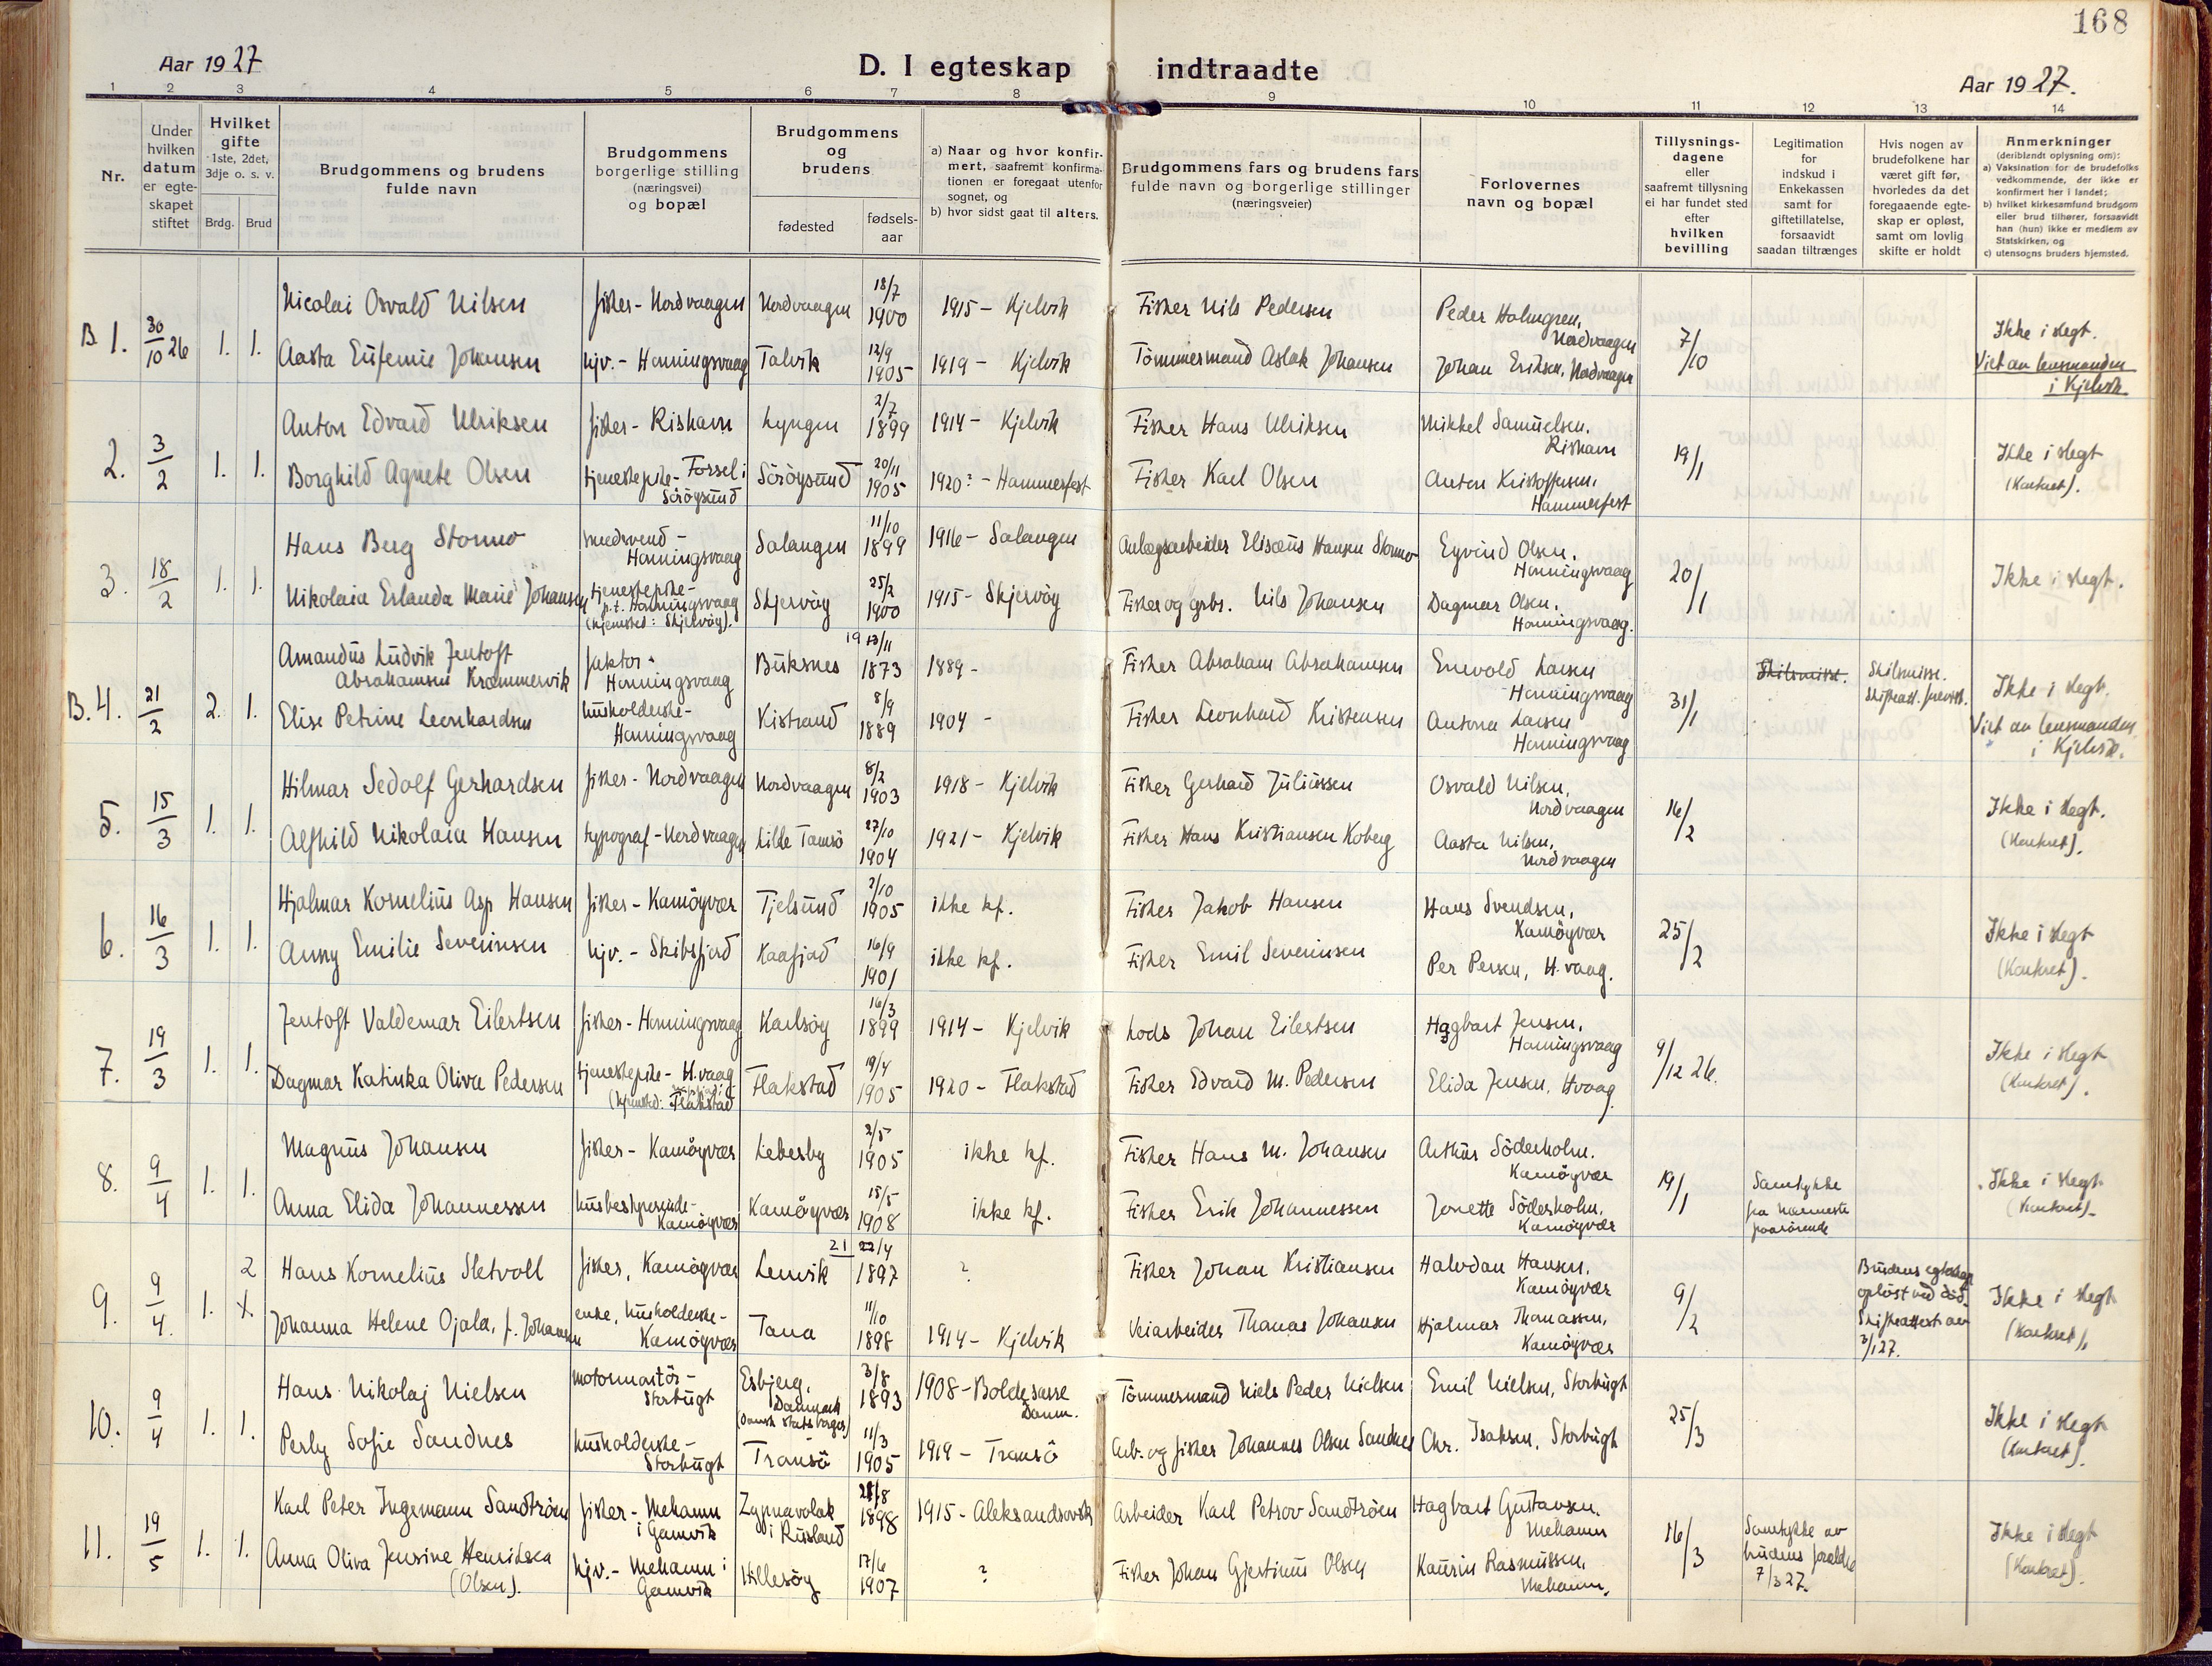 168
Aar 1927
D. I egteskap indtraadte
Aar 1927.
1 2 3 4 5 6 7 8 9 10 11 12 13 14
Nr.
Under hvilken datum er egteskapet stiftet
Hvilket gifte
1ste, 2det, 3dje o. s. v.
Brdg. Brud
Brudgommens og brudens fulde navn
Brudgommens borgerlige stilling (næringsvei) og bopæl
Brudgommens og brudens
fødested
fødselsaar
a) Naar og hvor konfirmert, saafremt konfirmationen er foregaat utenfor sognet, og
b) hvor sidst gaat til alters.
Brudgommens fars og brudens fars fulde navn og borgerlige stillinger (næringsveier)
Forlovernes navn og bopæl
Tillysningsdagene eller saafremt tillysning ei har fundet sted efter hvilken bevilling
Legitimation for indskud i Enkekassen samt for giftetillatelse, forsaavidt saadan tiltrænges
Hvis nogen av brudefolkene har været gift før, hvorledes da det foregaaende egteskap er opløst, samt om lovlig skifte er holdt
Anmerkninger
(deriblandt oplysning om):
a) Vaksination for de brudefolks vedkommende, der ikke er konfirmert her i landet;
b) hvilket kirkesamfund brudgom eller brud tilhører, forsaavidt han (hun) ikke er medlem av Statskirken, og
c) utensogns bruders hjemsted.
B. 1. 30/10 26 1. 1.
Nicolai Osvald Nilsen fisker - Nordvaagen Nordvaagen 18/7 1900 1915 - Kjelvik Fisker Nils Pedersen Peder Holmgren, Nordvaagen 7/10 Ikke i slegt.
Aasta Eufemie Johansen hjv. - Honningsvaag Talvik 12/9 1905 1919 - Kjelvik Tömmermand Aslak Johansen Johan Eriksen, Nordvaagen Viet av lensmanden i Kjelvik.
2. 3/2 1. 1.
Anton Edvard Ulriksen fisker - Rishavn Lyngen 2/7 1899 1914 - Kjelvik Fisker Hans Ulriksen Mikkel Samuelsen, Rishavn 19/1 Ikke i slegt
Borghild Agnete Olsen tjenestepike - Forsøl i Söröysund Söröysund 20/11 1905 1920? - Hammerfest Fisker Karl Olsen Anton Kristoffersen, Hammerfest (Kontoret).
3. 18/2 1. 1.
Hans Berg Stormo smedsvend - Honningsvaag Salangen 11/10 1899 1916 - Salangen Anlægsarbeider Elisæus Hansen Stormo Eyvind Olsen, Honningsvaag 20/1 Ikke i slegt.
Nikolaia Erlanda Marie Johansen tjenestepike - p.t. Honningsvaag (hjemsted: Skjervöy). Skjervöy 25/2 1900 1915 - Skjervöy Fisker og grbr. Nils Johansen Dagmar Olsen, Honningsvaag.
B. 4. 21/2 2. 1.
Amandus Ludvik Jentoft Abrahamsen Kræmmervik faktor - Honningsvaag Buksnes 19 13/11 1873 1889 - Fisker Abraham Abrahamsen Enevold Larsen Honningsvaag 31/1 Skilsmisse. Skilsmisse. Skifteatt. forevist. Ikke i slegt.
Elise Petrine Leonhardsen husholderske - Honningsvaag Kistrand 8/9 1889 1904 - Fisker Leonhard Kristensen Antona Larsen Honningsvaag Viet av lensmanden i Kjelvik.
5. 15/3 1. 1.
Hilmar Sedolf Gerhardsen fisker - Nordvaagen Nordvaagen 8/2 1903 1918 - Kjelvik Fisker Gerhard Juliussen Osvald Nilsen, Nordvaagen 16/2 Ikke i slegt.
Alfhild Nikolaia Hansen typograf - Nordvaagen Lille Tamsö 27/10 1904 1921 - Kjelvik Fisker Hans Kristiansen Koberg Aasta Nilsen, Nordvaagen (Kontoret).
6. 16/3 1. 1.
Hjalmar Kornelius Asp Hansen fisker - Kamöyvær Tjelsund 2/10 1905 ikke kf. Fisker Jakob Hansen Hans Svendsen, Kamöyvær 25/2 Ikke i slegt
Anny Emilie Severinsen hjv. - Skibsfjord Kaafjord 16/9 1901 ikke kf. Fisker Emil Severinsen Per Persen, H.vaag. (Kontoret).
7. 19/3 1. 1.
Jentoft Valdemar Eilertsen fisker - Honningsvaag Karlsöy 16/3 1899 1914 - Kjelvik Lods Johan Eilertsen Hagbart Jensen, Honningsvaag 9/12 26. Ikke i slegt
Dagmar Katinka Oliva Pedersen tjenestepike - H.vaag (hjemsted: Flakstad Flakstad 19/4 1905 1920 - Flakstad Fisker Edvard M. Pedersen Elida Jensen, Hvaag. (Kontoret).
8. 9/4 1. 1.
Magnus Johansen fisker - Kamöyvær Lebesby 2/5 1905 ikke kf. Fisker Hans M. Johansen Arthur Söderholm, Kamöyvær 19/1 Samtykke fra nærmeste paarörende Ikke i slegt
Anna Elida Johannessen husbestyrerinde - Kamöyvær Kamöyvær 15/5 1908 ikke kf. Fisker Erik Johannessen Jonette Söderholm, Kamöyvær (Kontoret).
9. 9/4. 1. 2
Hans Kornelius Sletvoll fisker, Kamöyvær Lenvik 21 22/4 1897 ? Fisker Johan Kristiansen Halvdan Hansen, Kamöyvær 9/2 Brudens egteskap oplöst ved död. Skifteattest av 3/1 27. Ikke i slegt
Johanna Helene Ojala, f. Johansen enke, husholderske - Kamöyvær Tana 11/10 1898 1914 - Kjelvik Veiarbeider Thomas Johansen Hjalmar Thomassen, Kamöyvær (Kontoret).
10. 9/4 1. 1.
Hans Nikolaj Nielsen motormontör - Storbugt Esbjerg, Danmark (Dansk statsborger) 3/8 1893 1908 - Boldesasre Danm. Tömmermand Niels Peder Nielsen Emil Nielsen, Storbugt 25/3 Ikke i slegt
Perly Sofie Sandnes husholderske - Storbugt Tromsö 11/3 1905 1919 - Tromsö Arb. og fisker Johannes Olsen Sandnes Chr. Isaksen, Storbugt (Kontoret).
11. 19/5 1. 1.
Karl Peter Ingemann Sandtröen fisker - Mehamn i Gamvik Zypnavolok i Rusland 28/8 1898 1915 - Aleksandrovsk Arbeider Karl Petrov Sandtröen Hagbart Gustavsen, Mehamn 16/3 Samtykke av brudens forældre 7/3 27. Ikke i slegt
Anna Oliva Jensine Henriksen (Olsen). hjv. - Mehamn i Gamvik Hillesöy 17/6 1907 ? Fisker Johan Gjertinus Olsen Kaurin Rasmussen, Mehamn. (Kontoret).